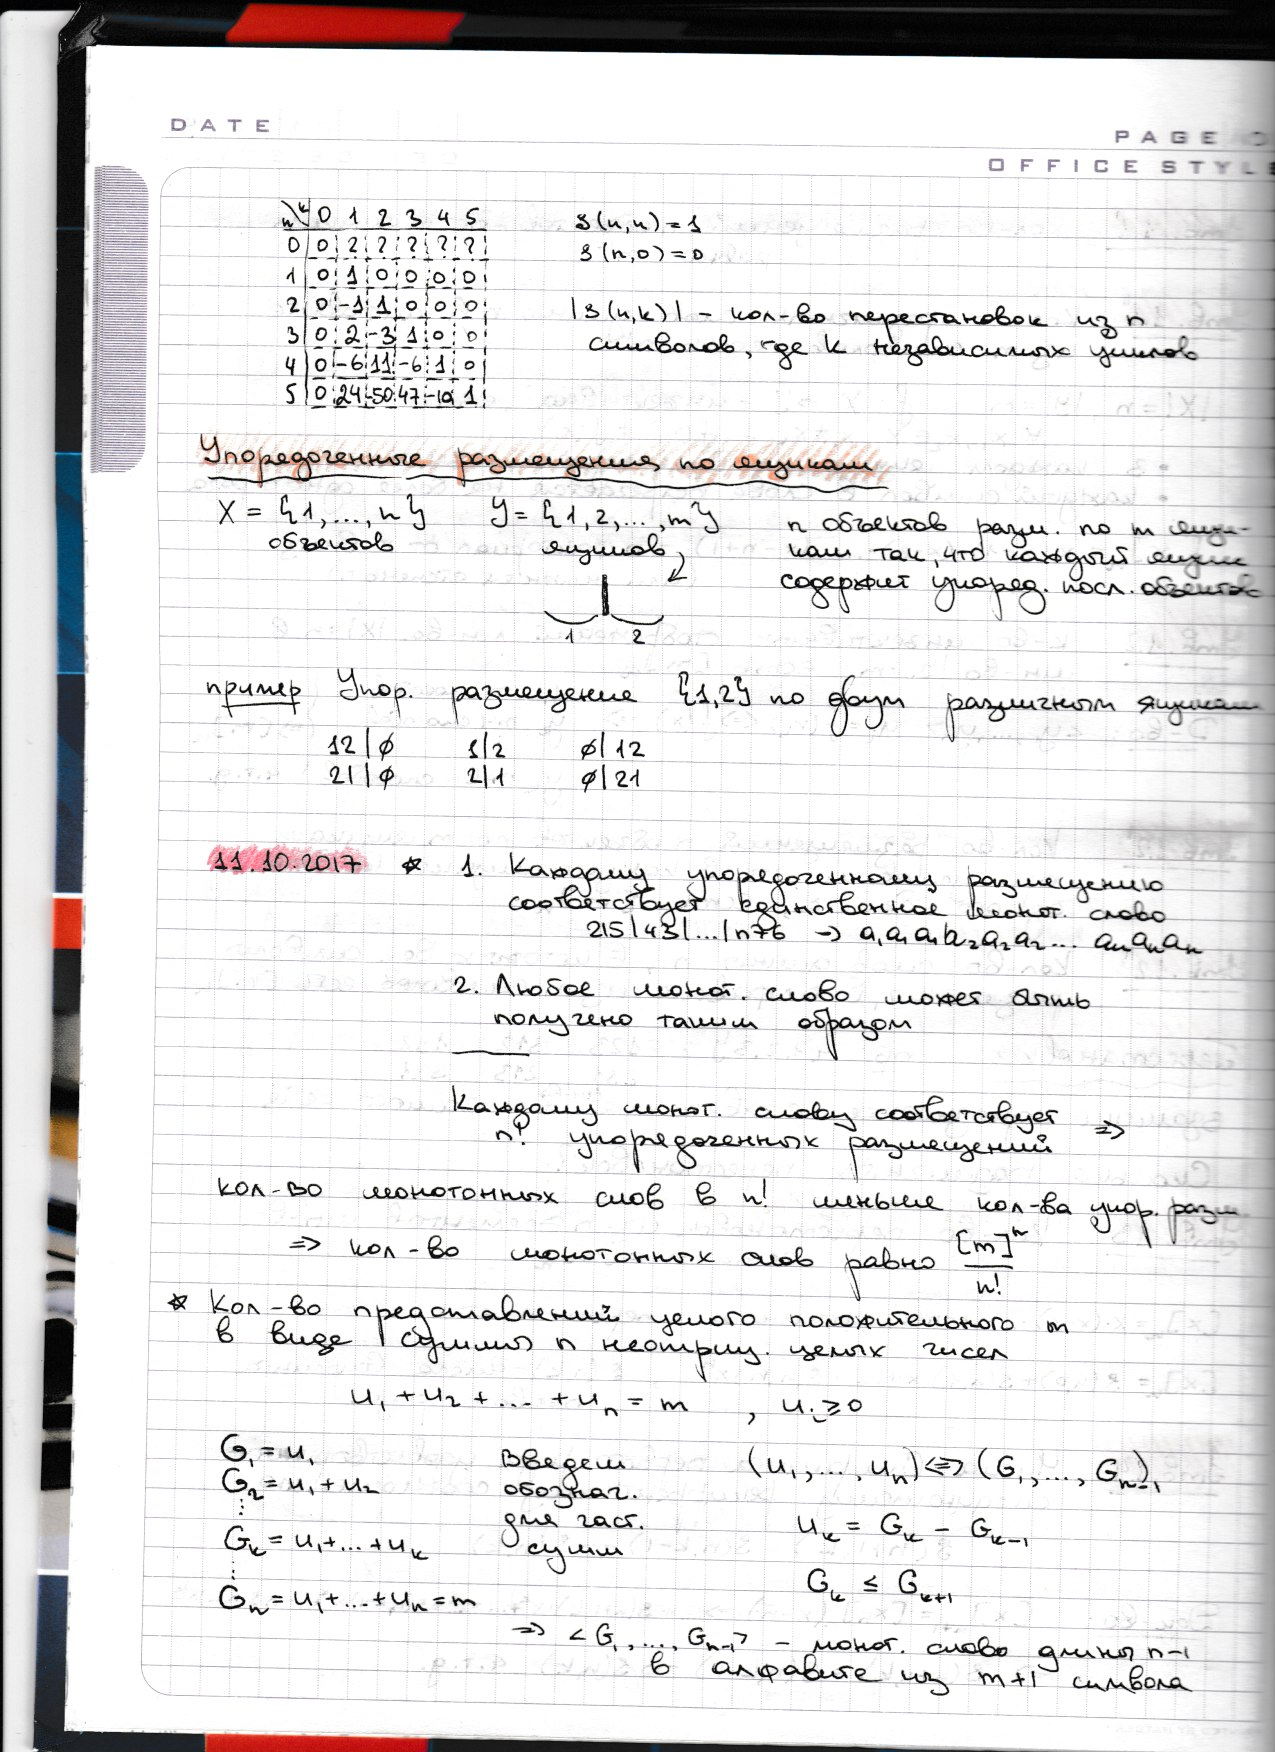 DATE
PAGE
OFFICE STYLE
n\k 0 1 2 3 4 5
0 0 ? ? ? ? ?
1 0 1 0 0 0 0
2 0 -1 1 0 0 0
3 0 2 -3 1 0 0
4 0 -6 11 -6 1 0
5 0 24 -50 47 -10 1
s(n,n) = 1
s(n,0) = 0
|s(n,k)| - кол-во перестановок из n
символов, где k независимых циклов
Упорядоченные размещения по ящикам
X = {1,...,n} Y = {1,2,...,m}
объектов ящиков
1 2
n объектов разм. по m ящи-
кам так, что каждый ящик
содержит упоряд. посл. объектов
пример Упор. размещение {1,2} по двум различным ящикам
12|∅ 1|2 ∅|12
21|∅ 2|1 ∅|21
11.10.2017 ☆ 1. Каждому упорядоченному размещению
соответствует единственное монот. слово
215|43|...|n76 → a₁a₁a₁a₂a₂a₂... aₙaₙaₙ
2. Любое монот. слово может быть
получено таким образом
Каждому монот. слову соответствует
n! упорядоченных размещений ⇒
кол-во монотонных слов в n! меньше кол-ва упор. разм
⇒ кол-во монотонных слов равно [m]ⁿ/n!
☆ Кол-во представлений целого положительного m
в виде суммы n неотриц. целых чисел
u₁ + u₂ + ... + uₙ = m , uᵢ ≥ 0
G₁ = u₁
G₂ = u₁ + u₂
⋮
Gₖ = u₁ + ... + uₖ
⋮
Gₙ = u₁ + ... + uₙ = m
Введем
обознач.
для част.
сумм
(u₁, ..., uₙ) ⇔ (G₁, ..., Gₙ₋₁),
uₖ = Gₖ - Gₖ₋₁
Gₖ ≤ Gₖ₊₁
⇒ <G₁, ..., Gₙ₋₁> - монот. слово длины n-1
в алфавите из m+1 символа